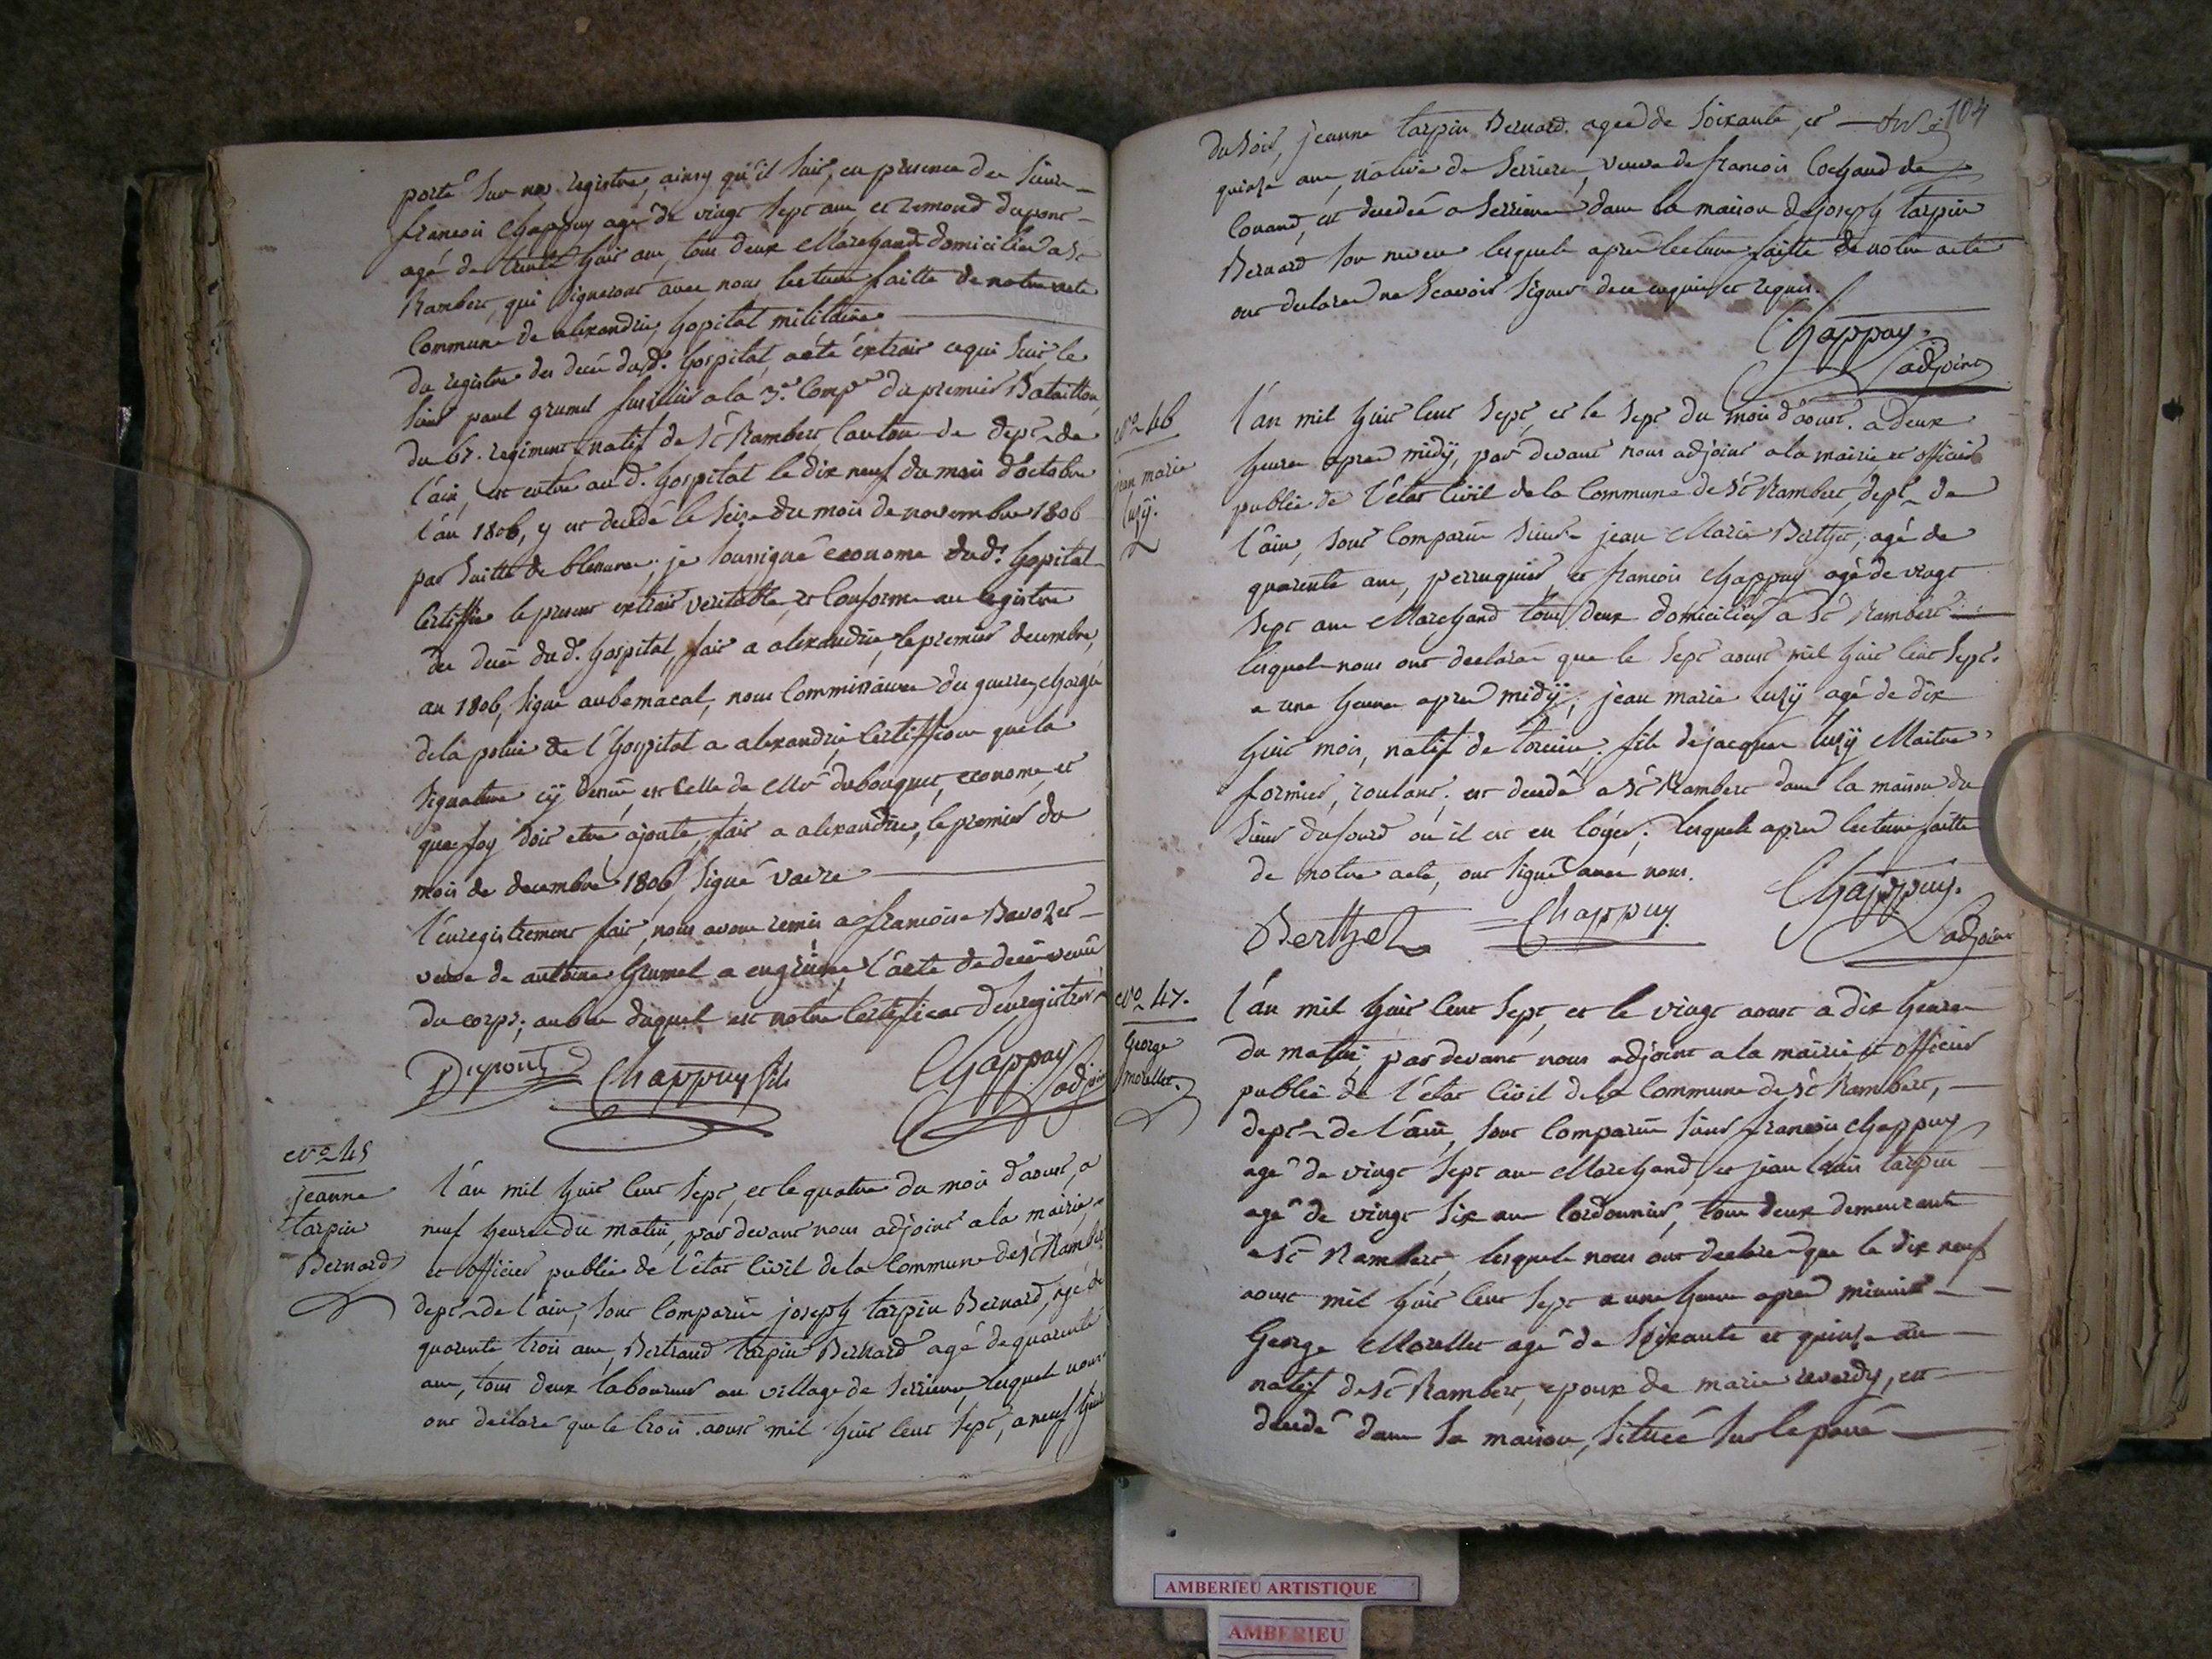 porté sur nos registres, ainsy qu'il suit, en presence des sieurs
francois Chappuy agé de vingt sept ans et remond dupont
agé de trente huit ans, tous deux Marchands domiciliés a St
Rambert, qui signeront avec nous lecture faitte de notre acte
Commune de alexandrie, hopital militaire
du registre des decés dud. hospital, a été extrait ce qui suit, le
sieur paul grumel fusillier a la 3e. Compe du premier Bataillon
du 67. regiment natif de St Rambert Canton de dept de
l'ain, est entré aud. hospital le dix neuf du mois d'octobre
l'an 1806, y est decedé le seize du mois de novembre 1806
par suitte de blessures; je soussigné econome dud. hopital
Certiffie le present extrait veritable, et Conforme au registre
des decés dud. hospital, fait a alexandrie, le premier decembre,
an 1806, signé aubemacal, nous Commissaires des guerres, chargé
de la police de l'hospital a alexandrie Certiffions que la
signature cÿ dessus, est Celle de Mr dubouquet, econome, et
que foy doit etre ajoute, fait a alexandrie, le premier du
mois de decembre 1806, signé vaere
l'enregistrement fait, nous avons remis a francoise Ravozet
veuve de antoine Grumel a l'acte de decés venu
du corps; au bas duquel est notre Certificat d'enregistrer
Dupont Chappuy fils Chappuy adjoint
No 45
jeanne
tarpin
Bernard
l'an mil huit Cent sept, et le quatre du mois d'aoust, a
neuf heures du matin, par devant nous adjoint a la mairie,
et officier public de l'état Civil de la Commune de St Rambert
dept de l'ain, sont Comparus joseph tarpin Bernard, agé de
quarente trois ans, Bertrand tarpin Bernard agé de quarente
ans, tous deux laboureurs au village de Serrieres, lesquels nous
ont declaré que le trois aoust mil huit Cent sept, a neuf heures
104
du soir, jeanne tarpin Bernard. ageé de soixante, et
quinze ans, native de Serrieres, veuve de francois Cochand de
Conand, est decedeé a Serrieres dans la maison de joseph tarpin
Bernard son neveu lesquels apres lecture faitte de notre acte
ont declaré ne scavoir signer de ce enquis et requis.
Chappuy.
adjoint
No 46
jean marie
luzÿ.
l'an mil huit Cent sept, et le sept du mois d'aoust. a deux
heures apres midÿ, par devant nous adjoint a la mairie et officier
public de l'état Civil de la Commune de St Rambert, dept de
l'ain, sont Comparus sieurs jean Marie Berthet, agé de
quarente ans, perruquier, et francois Chappuy agé de vingt
sept ans Marchand tous deux domiciliés a St Rambert
lesquels nous ont declaré que le sept aoust mil huit Cent sept.
a une heure apres midÿ, jean marie luzÿ agé de dix
huit mois, natif de . fils de jacques luzÿ Maitre
formier, roulant. est decedé a St Rambert dans la maison du
sieur dufourd ou il est en loÿer; lesquels apres lecture faitte
de notre acte, ont signé avec nous.
Berthet Chappuy. Chappuy.
adjoint
No 47.
George
morellet.
l'an mil huit Cent sept, et le vingt aoust a dix heures
du matin, par devant nous adjoint a la mairie et officier
public de l'état Civil de la Commune de St Rambert,
dept de l'ain, sont Comparus sieur francois Chappuy
agé de vingt sept ans Marchand, et jean louis tarpin
agé de vingt six ans Cordonnier, tous deux demeurants
a St Rambert, lesquels nous ont declaré que le dix neuf
aoust mil huit Cent sept a une heure apres minuit
George Morellet agé de soixante et quinze ans
natif de St Rambert, epoux de marie reverdy, est
decedé dans sa maison, situeé sur le pavé
AMBERIEU ARTISTIQUE
AMBERIEU